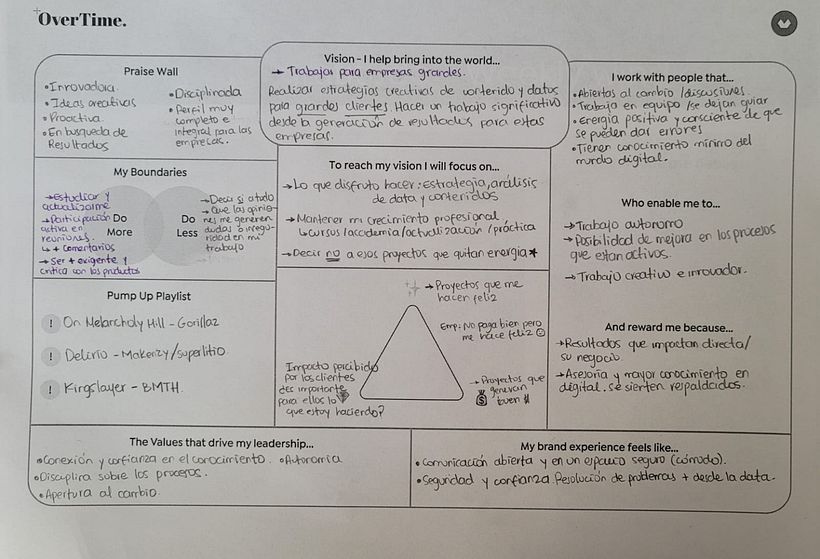 OverTime.
Praise Wall
• Innovadora.
• Ideas creativas
• Proactiva.
• En búsqueda de
Resultados
• Disciplinada
• Perfil muy
completo e
integral para las
empresas.
Vision - I help bring into the world...
→ Trabajar para empresas grandes.
Realizar estrategias creativas de contenido y datos
para grandes clientes. Hacer un trabajo significativo
desde la generación de resultados para estas
empresas.
I work with people that...
• Abiertas al cambio /discusiones.
• Trabaja en equipo /se dejan guiar
• Energía positiva y consciente de que
se pueden dar errores
• Tienen conocimiento mínimo del
mundo digital.
My Boundaries
→ Estudiar y
actualizarme
→ Participación
activa en
reuniones.
↳ + comentarios
→ Ser + exigente y
critica con los productos
Do
More
Do
Less
→ Decir si a todo
→ Que las opinio-
nes me generen
dudas o insegu-
ridad en mi
trabajo
To reach my vision I will focus on...
→ Lo que disfruto hacer: estrategia, análisis
de data y contenidos
→ Mantener mi crecimiento profesional
↳ cursos /academia/actualización /práctica
→ Decir no a esos proyectos que quitan energía★
Who enable me to...
→ Trabajo autonomo
→ Posibilidad de mejora en los procesos
que estan activos.
→ Trabajo creativo e innovador.
Pump Up Playlist
! On Melancholy Hill - Gorillaz
! Delirio - Makenzy/superlitio
! Kingslayer - BMTH.
→ Proyectos que me
hacer feliz
Emp: No paga bien pero
me hace feliz ☺
Impacto percibido
por los clientes
¿es importante
para ellos lo
que estoy haciendo?
→ Proyectos que
generan
buen $
And reward me because...
→ Resultados que impactan directa/
su negocio.
→ Asesoría y mayor conocimiento en
digital. se sienten respaldados.
The Values that drive my leadership...
• Conexión y confianza en el conocimiento. • Autonomía
• Disciplina sobre los procesos.
• Apertura al cambio.
My brand experience feels like...
• Comunicación abierta y en un espacio seguro (cómodo).
• Seguridad y confianza. Resolución de problemas + desde la data.